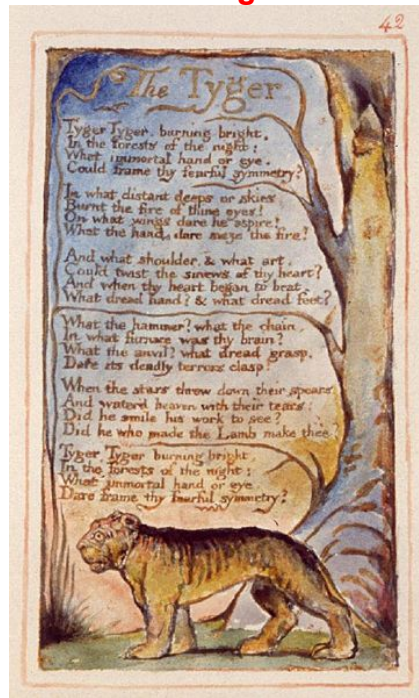 42
The Tyger
Tyger Tyger, burning bright,
In the forests of the night:
What immortal hand or eye,
Could frame thy fearful symmetry?
In what distant deeps or skies
Burnt the fire of thine eyes!
On what wings dare he aspire!
What the hand, dare sieze the fire!
And what shoulder, & what art,
Could twist the sinews of thy heart?
And when thy heart began to beat,
What dread hand? & what dread feet?
What the hammer? what the chain,
In what furnace was thy brain?
What the anvil? what dread grasp,
Dare its deadly terrors clasp!
When the stars threw down their spears
And water'd heaven with their tears:
Did he smile his work to see?
Did he who made the Lamb make thee?
Tyger Tyger burning bright,
In the forests of the night:
What immortal hand or eye,
Dare frame thy fearful symmetry?